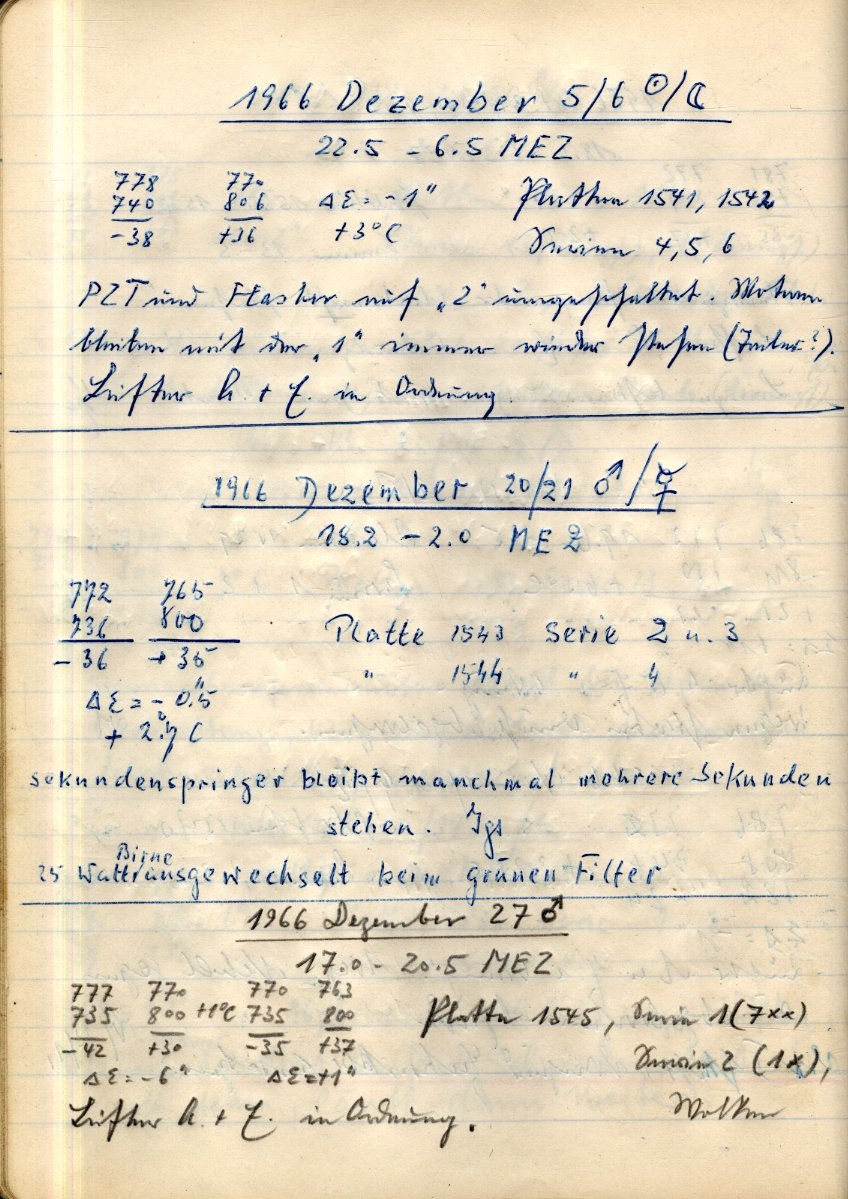 1966 Dezember 5/6 ☉/☾
22.5 – 6.5 MEZ
778 770 ΔΣ = -1" Platten 1541, 1542
740 806 +3°C
-38 +36 Serien 4, 5, 6
PZT und Flasher auf „2" umgeschaltet. Motoren
bleiben mit der „1" immer wieder stehen (Teiler?).
Lüfter h. + t. in Ordnung.
1966 Dezember 20/21 ♂/☿
18.2 – 2.0 MEZ
772 765
736 800 Platte 1543 Serie 2 u. 3
-36 +35 " 1544 " 4
ΔΣ = -0."5
+ 2.°7 C
Sekundenspringer bleibt manchmal mehrere Sekunden
stehen. Igs
25 Watt Birne ausgewechselt beim grünen Filter
1966 Dezember 27 ♂
17.0 – 20.5 MEZ
777 770 770 763
735 800 +1°C 735 800 Platte 1545, Serie 1 (7xx)
-42 +30 -35 +37 Serie 2 (1x),
ΔΣ = -6" ΔΣ = +1"
Lüfter h. + t. in Ordnung. Wolken